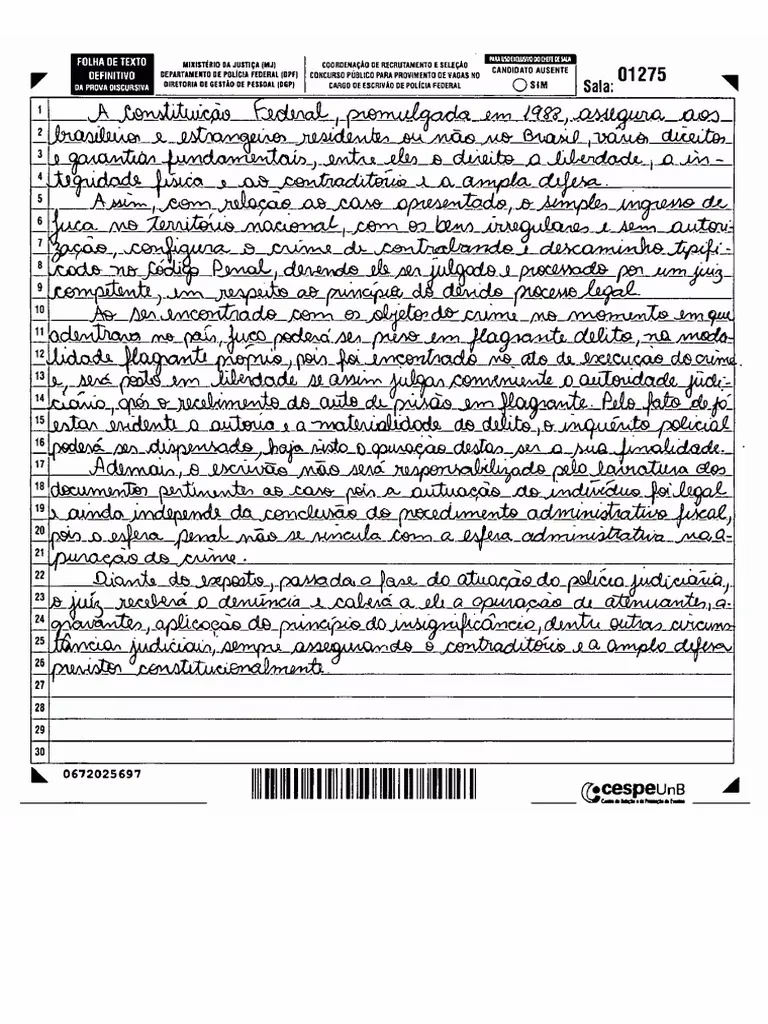 FOLHA DE TEXTO
DEFINITIVO
DA PROVA DISCURSIVA
MINISTÉRIO DA JUSTIÇA (MJ)
DEPARTAMENTO DE POLÍCIA FEDERAL (DPF)
DIRETORIA DE GESTÃO DE PESSOAL (DGP)
COORDENAÇÃO DE RECRUTAMENTO E SELEÇÃO
CONCURSO PÚBLICO PARA PROVIMENTO DE VAGAS NO
CARGO DE ESCRIVÃO DE POLÍCIA FEDERAL
PARA USO EXCLUSIVO DO CHEFE DE SALA
CANDIDATO AUSENTE
SIM
Sala: 01275
1 A Constituição Federal, promulgada em 1988, assegura aos
2 brasileiros e estrangeiros residentes ou não no Brasil, vários direitos
3 e garantias fundamentais, entre eles o direito a liberdade, a in-
4 tegridade física e ao contraditório e a ampla defesa.
5 Assim, com relação ao caso apresentado, o simples ingresso de
6 Juca no território nacional, com os bens irregulares e sem autori-
7 zação, configura o crime de contrabando e descaminho tipifi-
8 cado no Código Penal, devendo ele ser julgado e processado por um juiz
9 competente, em respeito ao princípio do devido processo legal.
10 Ao ser encontrado com os objetos do crime no momento em que
11 adentrava no país, Juca poderá ser preso em flagrante delito, na moda-
12 lidade flagrante próprio, pois foi encontrado no ato de execução do crime
13 e, será posto em liberdade se assim julgar conveniente a autoridade judi-
14 ciária, após o recebimento do auto de prisão em flagrante. Pelo fato de já
15 estar evidente a autoria e a materialidade do delito, o inquérito policial
16 poderá ser dispensado, haja vista a apuração destas ser a sua finalidade.
17 Ademais, o escrivão não será responsabilizado pela lavratura dos
18 documentos pertinentes ao caso pois a autuação do indivíduo foi legal
19 e ainda independe da conclusão do procedimento administrativo fiscal,
20 pois a esfera penal não se vincula com a esfera administrativa na a-
21 puração do crime.
22 Diante do exposto, passada a fase da atuação da polícia judiciária,
23 o juíz receberá a denúncia e caberá a ele a apuração de atenuantes, a-
24 gravantes, aplicação do princípio da insignificância, dentre outras circuns-
25 tâncias judiciais, sempre assegurando o contraditório e a ampla defesa
26 previstos constitucionalmente.
27
28
29
30
0672025697
cespeUnB
Centro de Seleção e de Promoção de Eventos